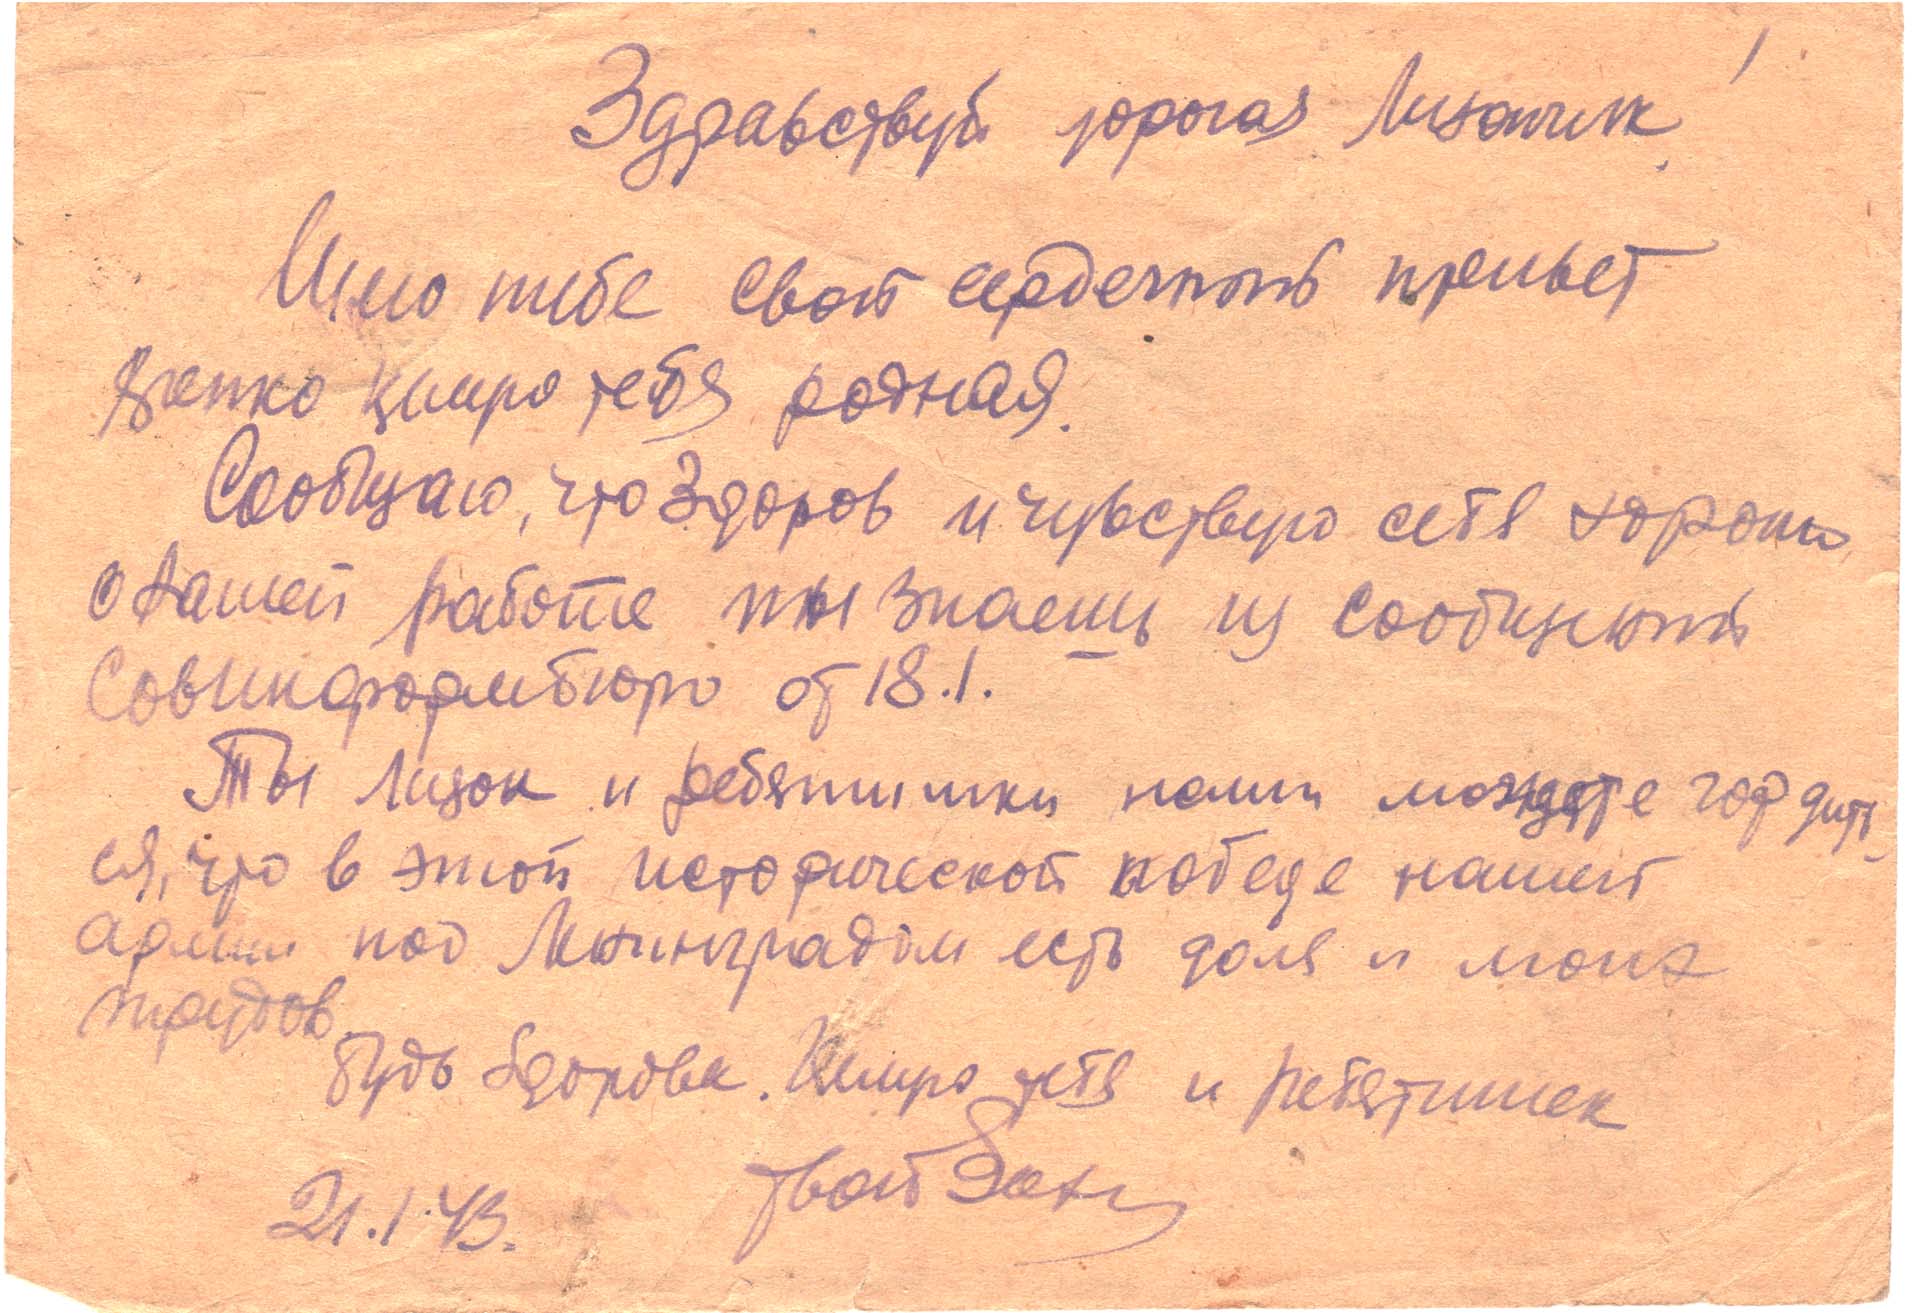 Здравствуй дорогая Лизончик!
Шлю тебе свой сердечный привет
крепко целую тебя родная.
Сообщаю, что здоров и чувствую себя хорошо
о нашей работе ты знаешь из сообщений
Совинформбюро от 18.1.
Ты Лизок и ребятишки наши можете гордить-
ся, что в этой исторической победе нашей
армии под Ленинградом есть доля и моих
трудов.
Будь здорова. Целую тебя и ребятишек
твой
21.1.43.